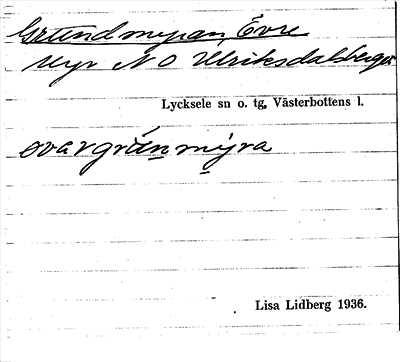 Grundmyran, Övre
myr N O Ulriksdalsberget
Lycksele sn o. tg, Västerbottens l.
ovargrúnmyra
Lisa Lidberg 1936.